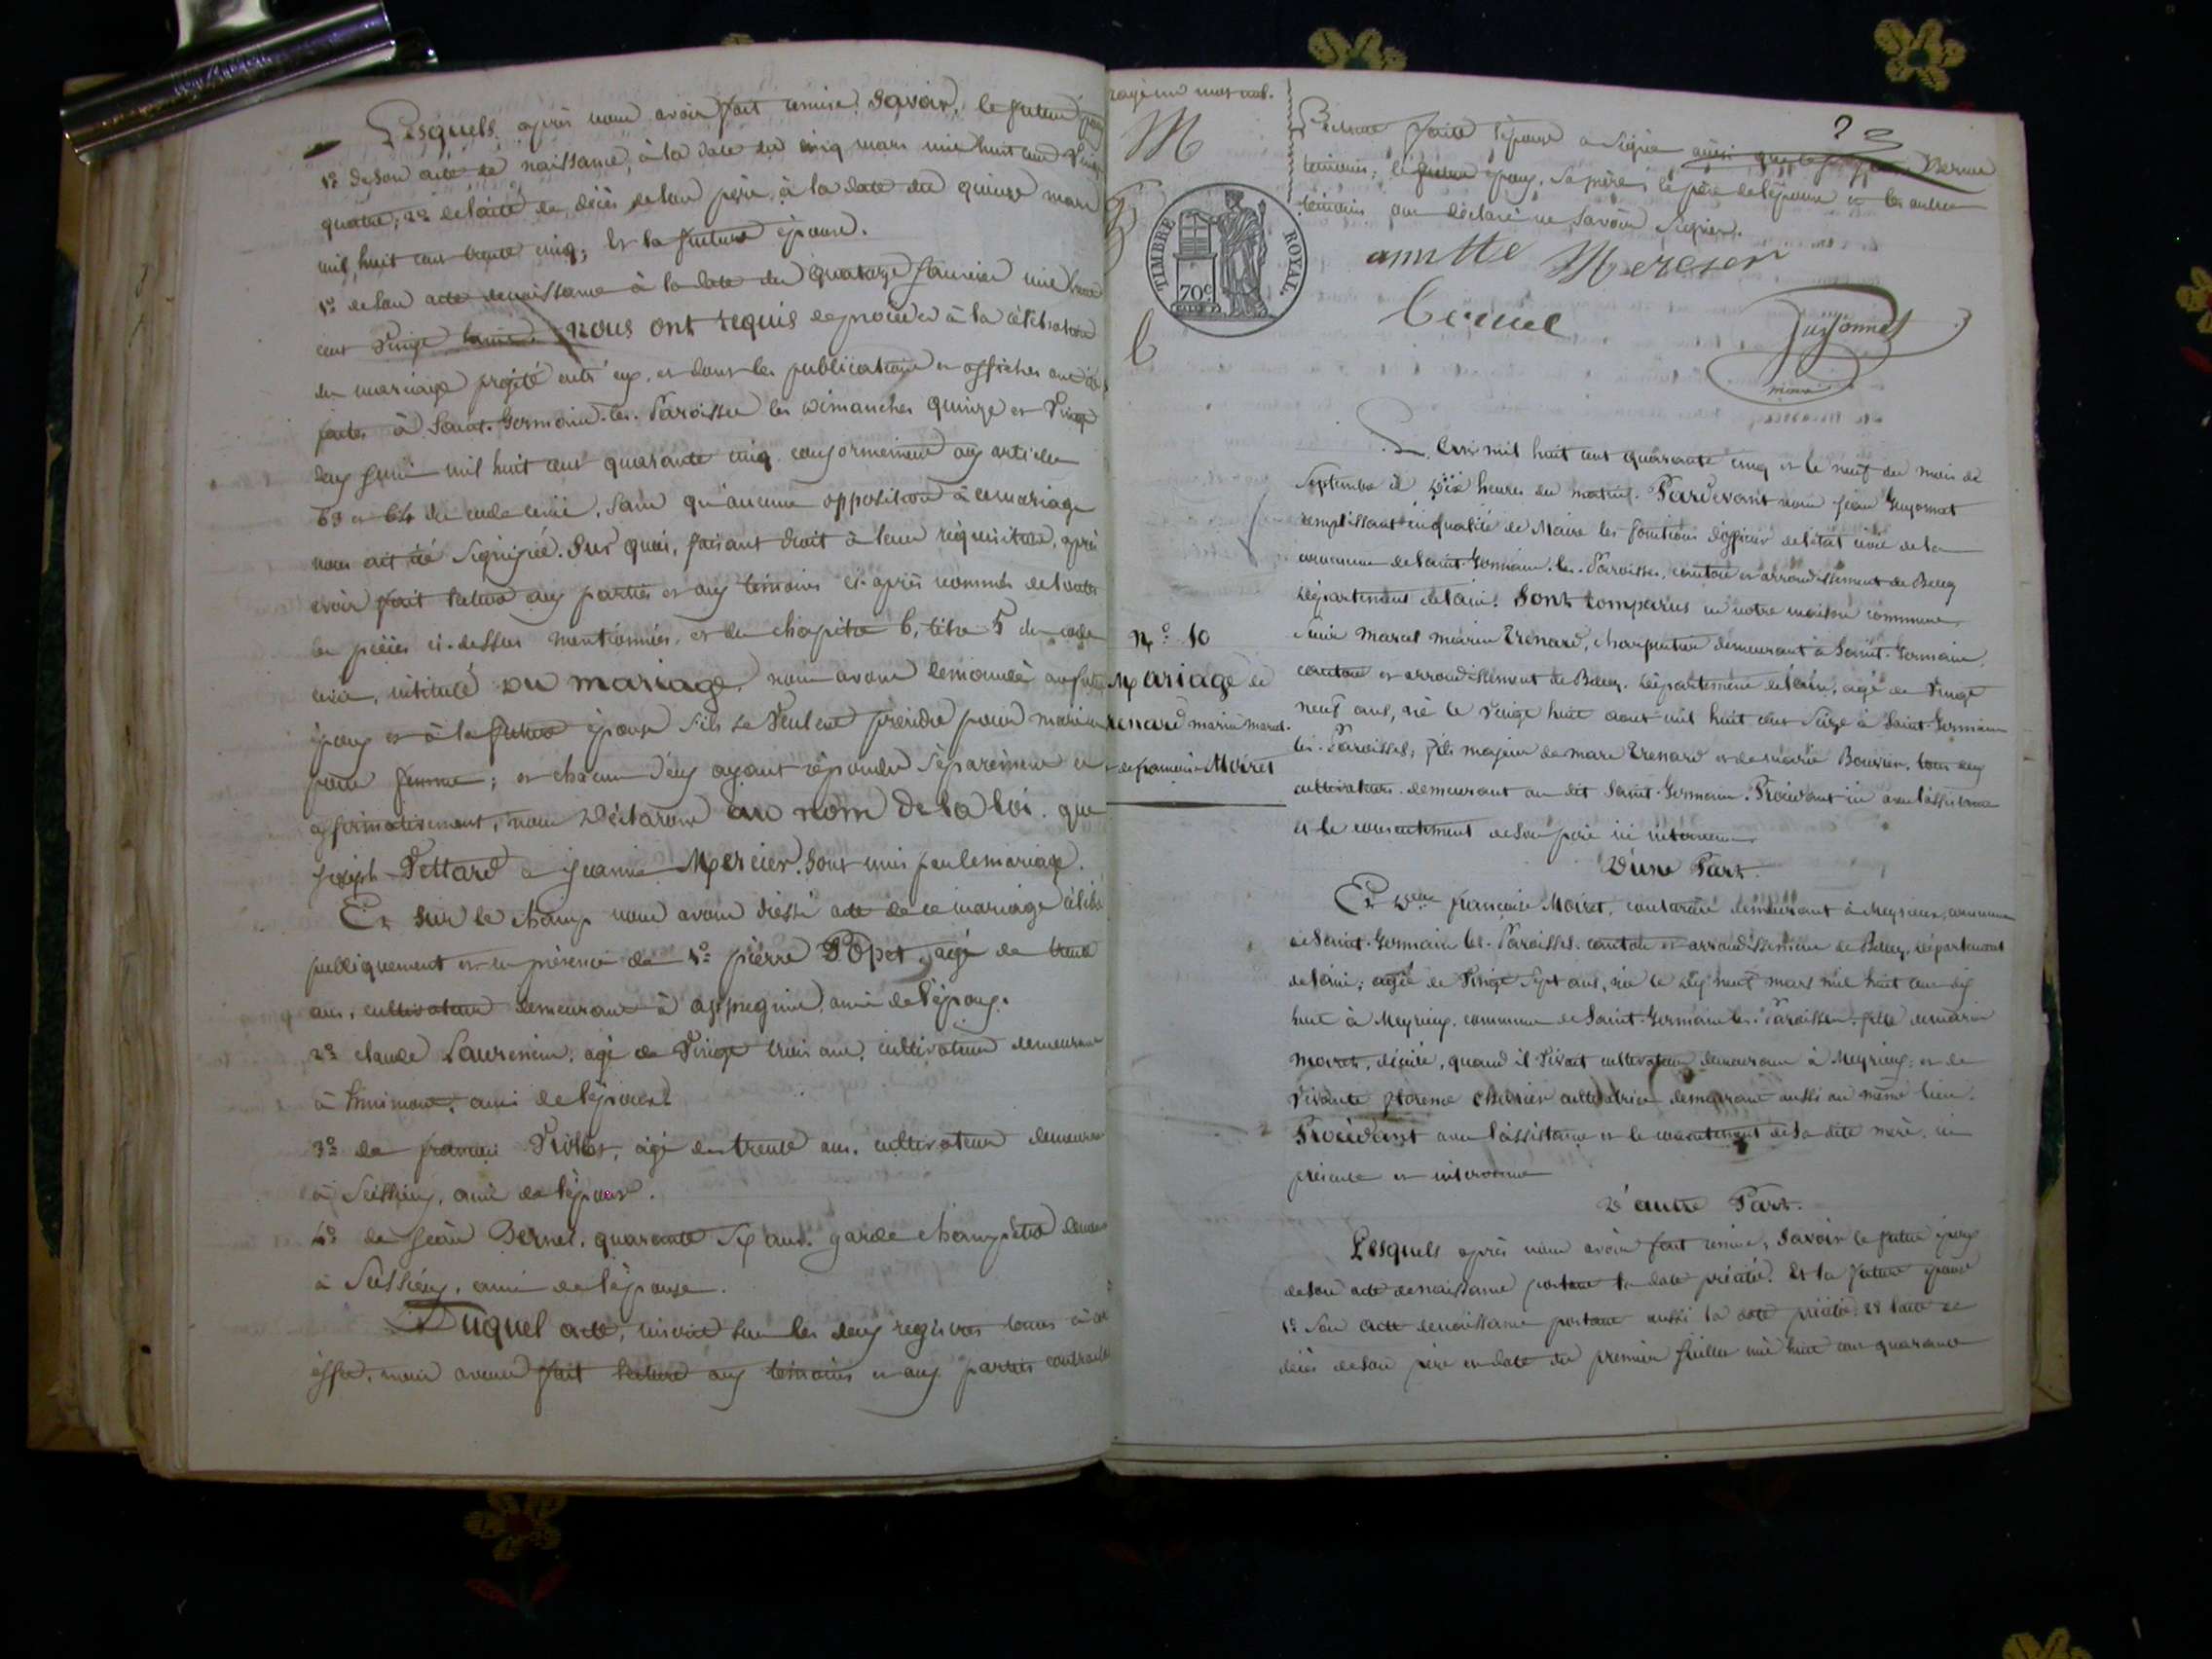 Lesquels après nous avoir fait remise, Savoir, le futur
1º de son acte de naissance, à la date du cinq mars mil huit cent vingt
quatre; 2º de l'acte de décès de son père, à la date du quinze mars
mil huit cent trente cinq; Et la future épouse.
1º de son acte de naissance à la date du quatorze janvier mil huit
cent vingt nous ont requis de procéder à la célébration
du mariage projeté entr'eux, et dont les publications et affiches ont été
faites à Saint-Germain-les-Paroisses les dimanches quinze et vingt
deux juin mil huit cent quarante cinq. conformément aux articles
63 et 64 du code civil, sans qu'aucune opposition à ce mariage
nous ait été signifiée. Sur quoi, faisant droit à leur réquisition, après
avoir fait lecture aux parties et aux témoins ci-après nommés de toutes
les pièces ci-dessus mentionnées, et du chapitre 6, titre 5 du code
civil, intitulé du mariage, nous avons demandé au futur
époux et à la future épouse s'ils se veulent prendre pour mari et
pour femme; et chacun d'eux ayant répondu séparément et
affirmativement, nous déclarons au nom de la loi. que
Joseph Pettard et Jeanne Mercier. Sont unis par le mariage.
Et sur le champ nous avons dressé acte de ce mariage célébré
publiquement et en présence de 1º pierre Popet, agé de trente
ans, cultivateur demeurant à appregnin, ami de l'époux.
2º claude Laurencin, agé de vingt trois ans, cultivateur demeurant
à ami de l'époux
3º de francois agé de trente ans, cultivateur demeurant
à ami de l'épouse.
4º de Jean Bernel, quarante six ans. garde champêtre
à ami de l'épouse.
Duquel acte, inscrit sur les deux registres tenus à cet
effet, nous avons fait lecture aux témoins et aux parties
rayé un mot nul.
M
TIMBRE ROYAL.
70c
23
Lecture faite l'épouse a signé ainsi que
témoins; le futur époux, sa mère, le père de l'épouse et les autres
témoins ont déclaré ne savoir signer.
annette Mercier
Guyonnet
maire
L'an mil huit cent quarante cinq et le neuf du mois de
Septembre à dix heures du matin. Pardevant nous Jean Guyonnet
remplissant en qualité de Maire les fonctions d'officier de l'état civil de la
commune de Saint-Germain-les-Paroisses, canton et arrondissement de Belley
département de l'ain. Sont comparus en notre maison commune
Nº 10
Mariage de
renard marin marcel.
et de francoise Moiret
Sieur Marcel marin Trenard, charpentier demeurant à Saint-Germain,
canton et arrondissement de Belley. Département de l'ain, agé de vingt
neuf ans, né le vingt huit aout mil huit cent seize à Saint-Germain
les-Paroisses, fils majeur de marc Trenard et de marie Bouvier, tous deux
cultivateurs demeurant au dit Saint-Germain. Procédant ici avec l'assistance
et le consentement de son père ici intervenu
D'une Part.
Et Delle francoise Moiret, demeurant à Meyrieux, commune
de Saint-Germain les-Paroisses. canton et arrondissement de Belley, département
de l'ain; agée de vingt sept ans, née le dix neuf mars mil huit cent dix
huit à Meyrieux, commune de Saint-Germain les-Paroisses. fille de marin
moiret, décédé, quand il vivait cultivateur demeurant à Meyrieux; et de
vivante cultivatrice demeurant aussi au même lieu.
Procédant avec l'assistance et le consentement de sa dite mère, ici
présente et intervenue
D'autre Part.
Lesquels après nous avoir fait remise, Savoir le futur époux
de son acte de naissance portant la date précitée. Et la future épouse
1º Son acte de naissance portant aussi la date précitée. 2º l'acte de
décès de son père en date du premier juillet mil huit cent quarante